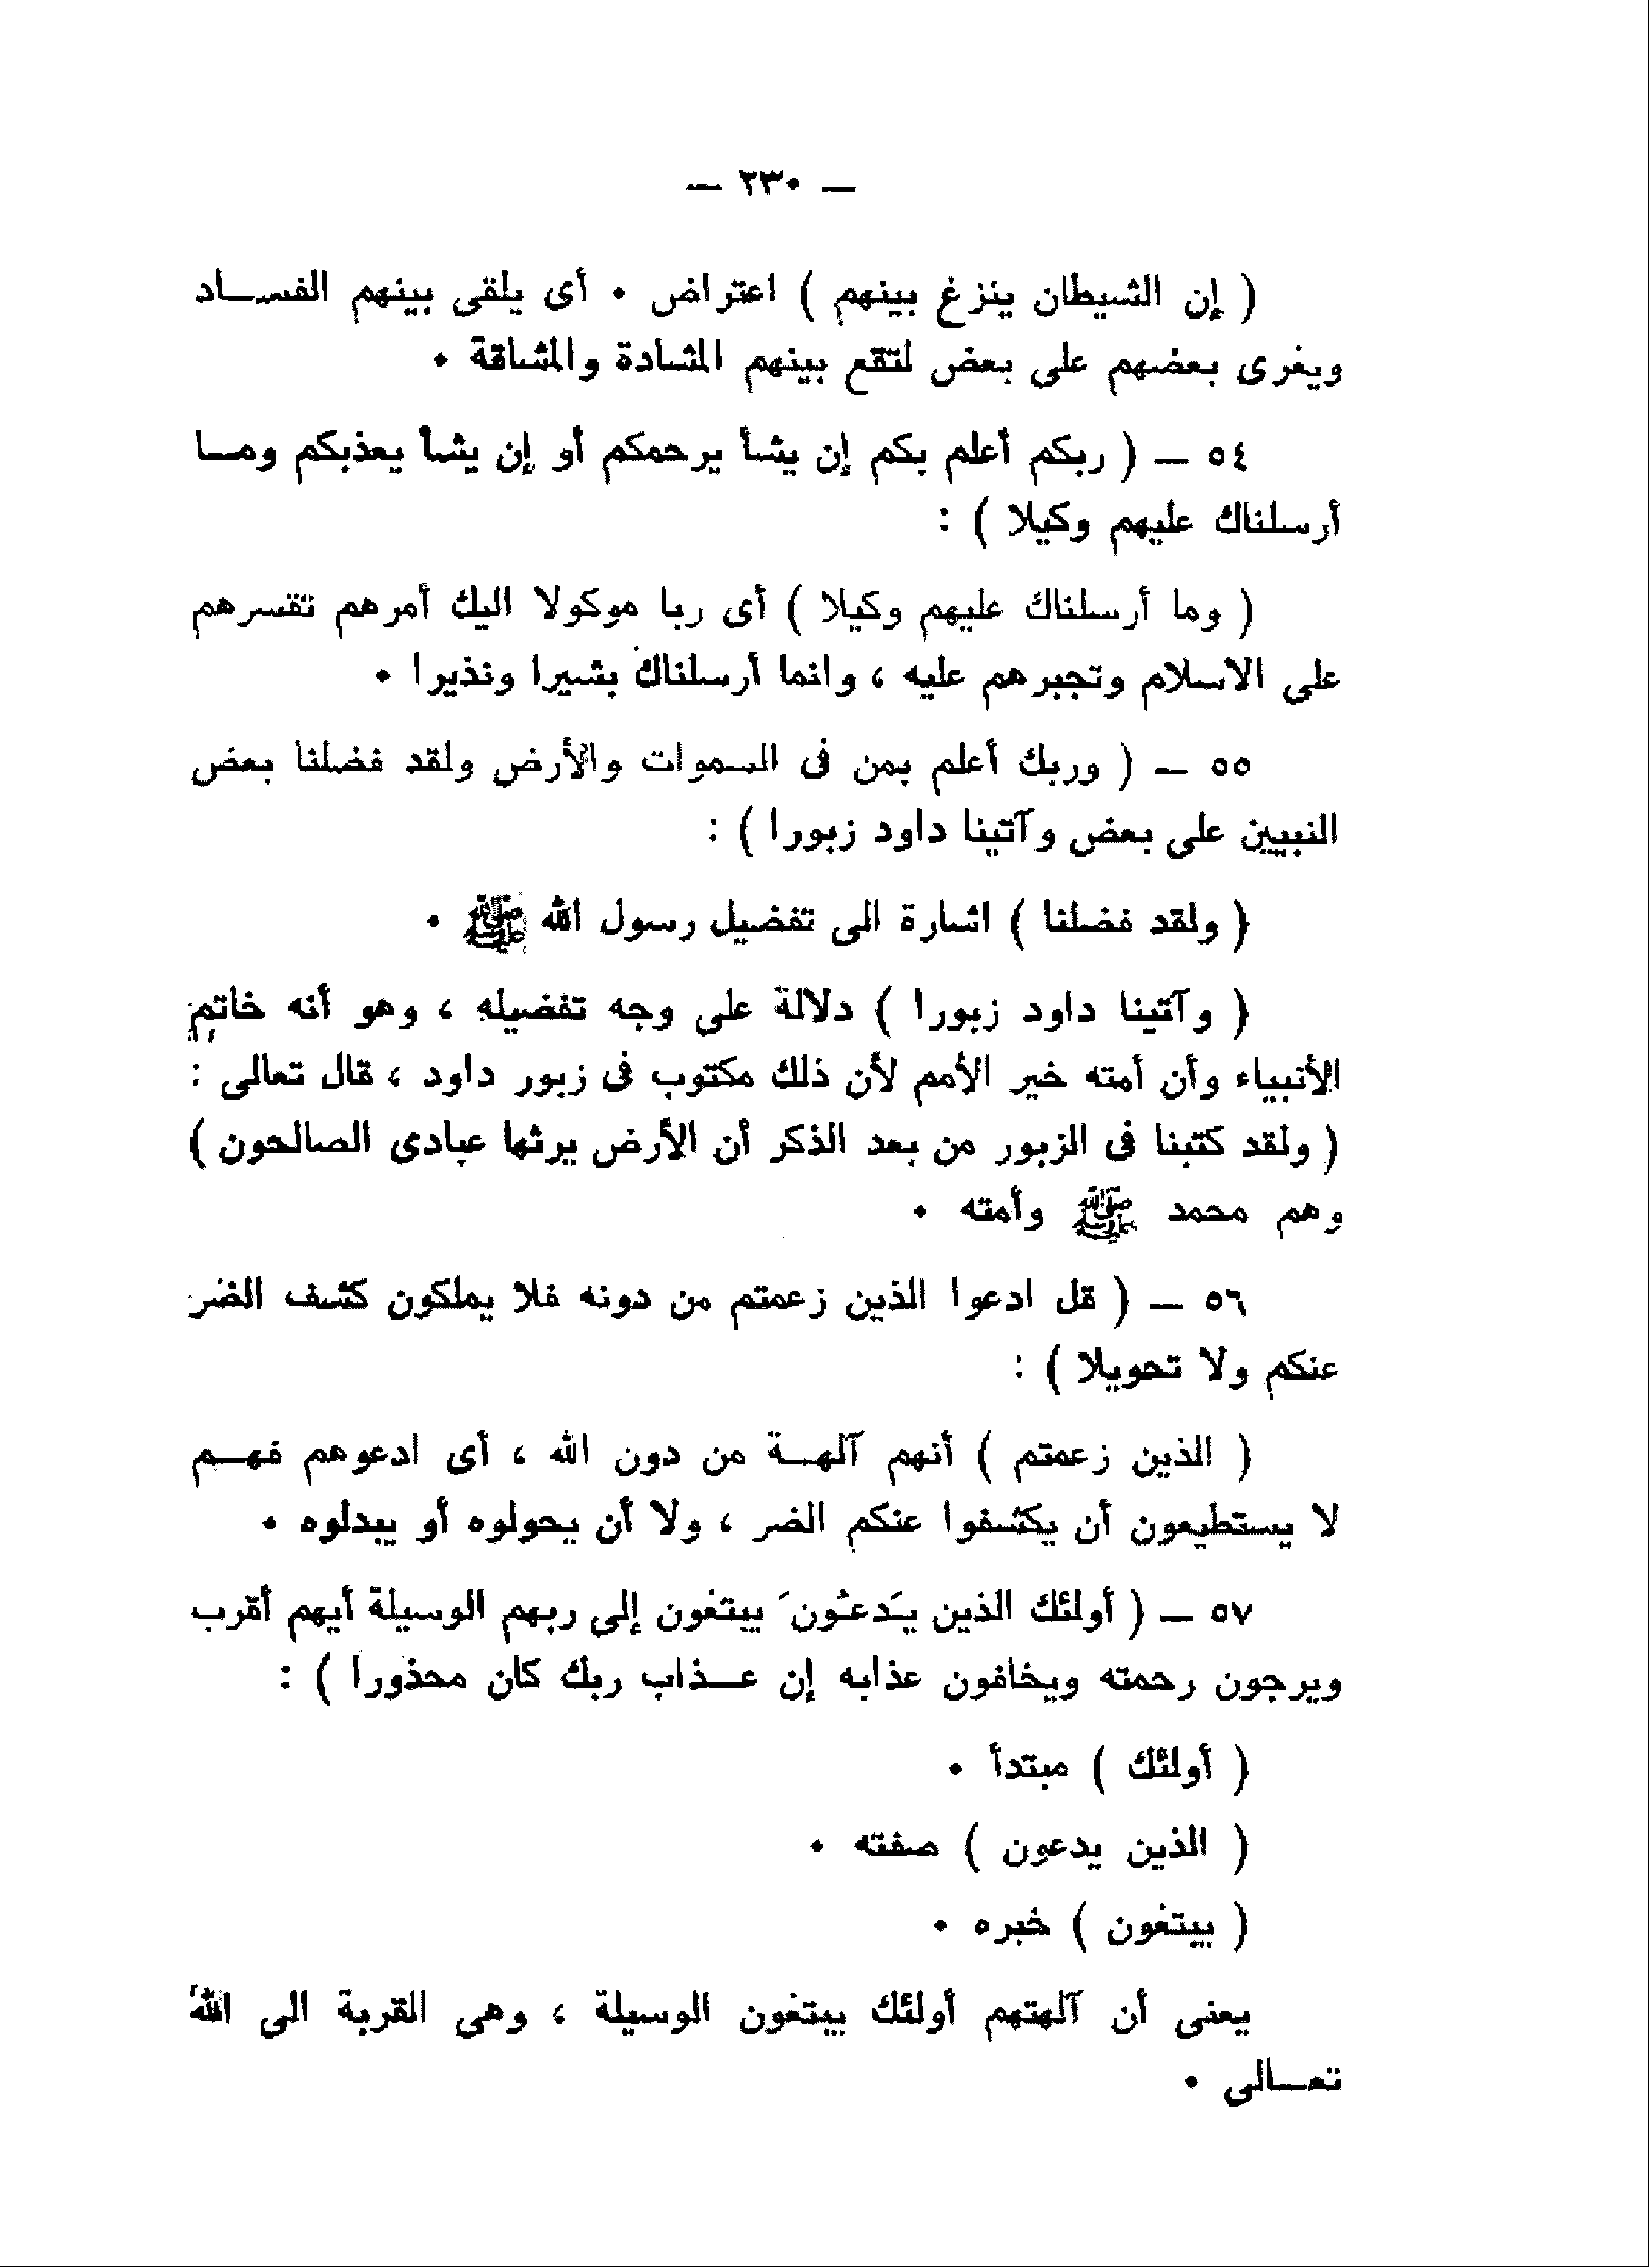 — ٢٣٠ —
( إن الشيطان ينزغ بينهم ) اعتراض ٠ أى يلقى بينهم الفســاد
ويغرى بعضهم على بعض لتقع بينهم المشادة والمشاقة ٠
٥٤ — ( ربكم أعلم بكم إن يشأ يرحمكم أو إن يشأ يعذبكم ومــا
أرسلناك عليهم وكيلا ) :
( وما أرسلناك عليهم وكيلا ) أى ربا موكولا اليك أمرهم تقسرهم
على الاسلام وتجبرهم عليه ، وانما أرسلناك بشيرا ونذيرا ٠
٥٥ — ( وربك أعلم بمن فى السموات والأرض ولقد فضلنا بعض
النبيين على بعض وآتينا داود زبورا ) :
( ولقد فضلنا ) اشارة الى تفضيل رسول الله ﷺ ٠
( وآتينا داود زبورا ) دلالة على وجه تفضيله ، وهو أنه خاتم
الأنبياء وأن أمته خير الأمم لأن ذلك مكتوب فى زبور داود ، قال تعالى :
( ولقد كتبنا فى الزبور من بعد الذكر أن الأرض يرثها عبادى الصالحون )
وهم محمد ﷺ وأمته ٠
٥٦ — ( قل ادعوا الذين زعمتم من دونه فلا يملكون كشف الضر
عنكم ولا تحويلا ) :
( الذين زعمتم ) أنهم آلهــة من دون الله ، أى ادعوهم فهــم
لا يستطيعون أن يكشفوا عنكم الضر ، ولا أن يحولوه أو يبدلوه ٠
٥٧ — ( أولئك الذين يَدعُونَ يبتغون إلى ربهم الوسيلة أيهم أقرب
ويرجون رحمته ويخافون عذابه إن عــذاب ربك كان محذورا ) :
( أولئك ) مبتدأ ٠
( الذين يدعون ) صفته ٠
( يبتغون ) خبره ٠
يعنى أن آلهتهم أولئك يبتغون الوسيلة ، وهى القربة الى الله
تعــالى ٠